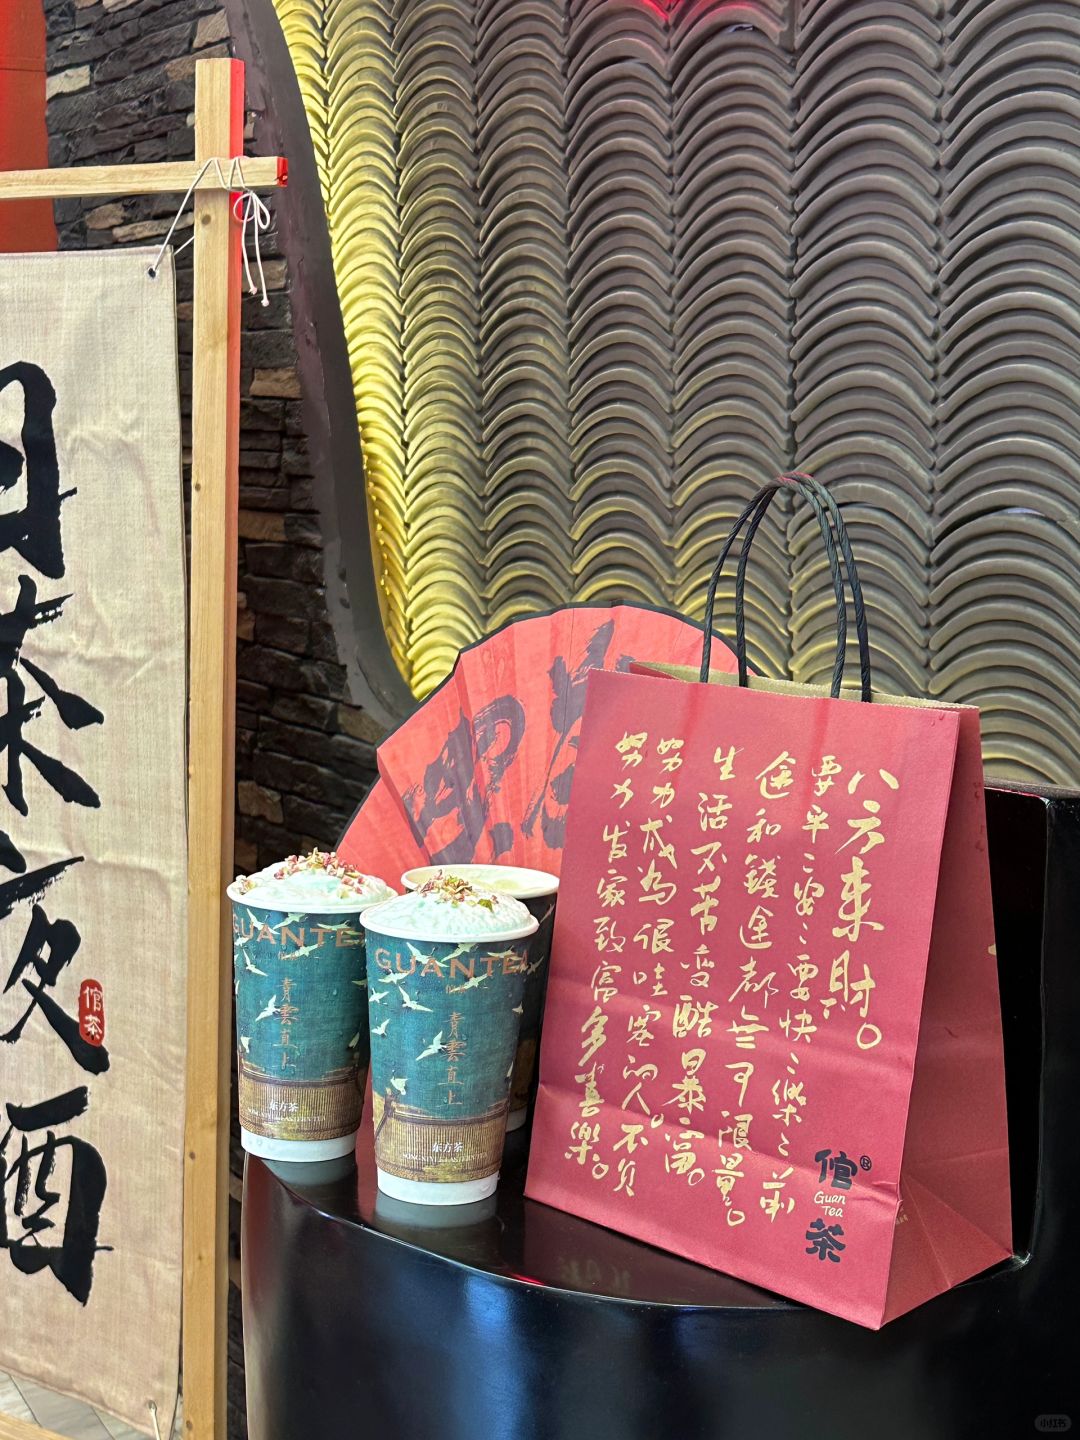 日茶夜酒
倌茶
GUANTEA
青雲直上
东方茶
GUANTEA
青雲直上
东方茶
八方来財。
要平〻安〻要快〻樂〻前
途和錢途都無可限量。
生活不苦变酷暴富。
努力成為很哇塞的人。不負
努力发家致富多喜樂。
倌®
Guan
Tea
茶
小红书